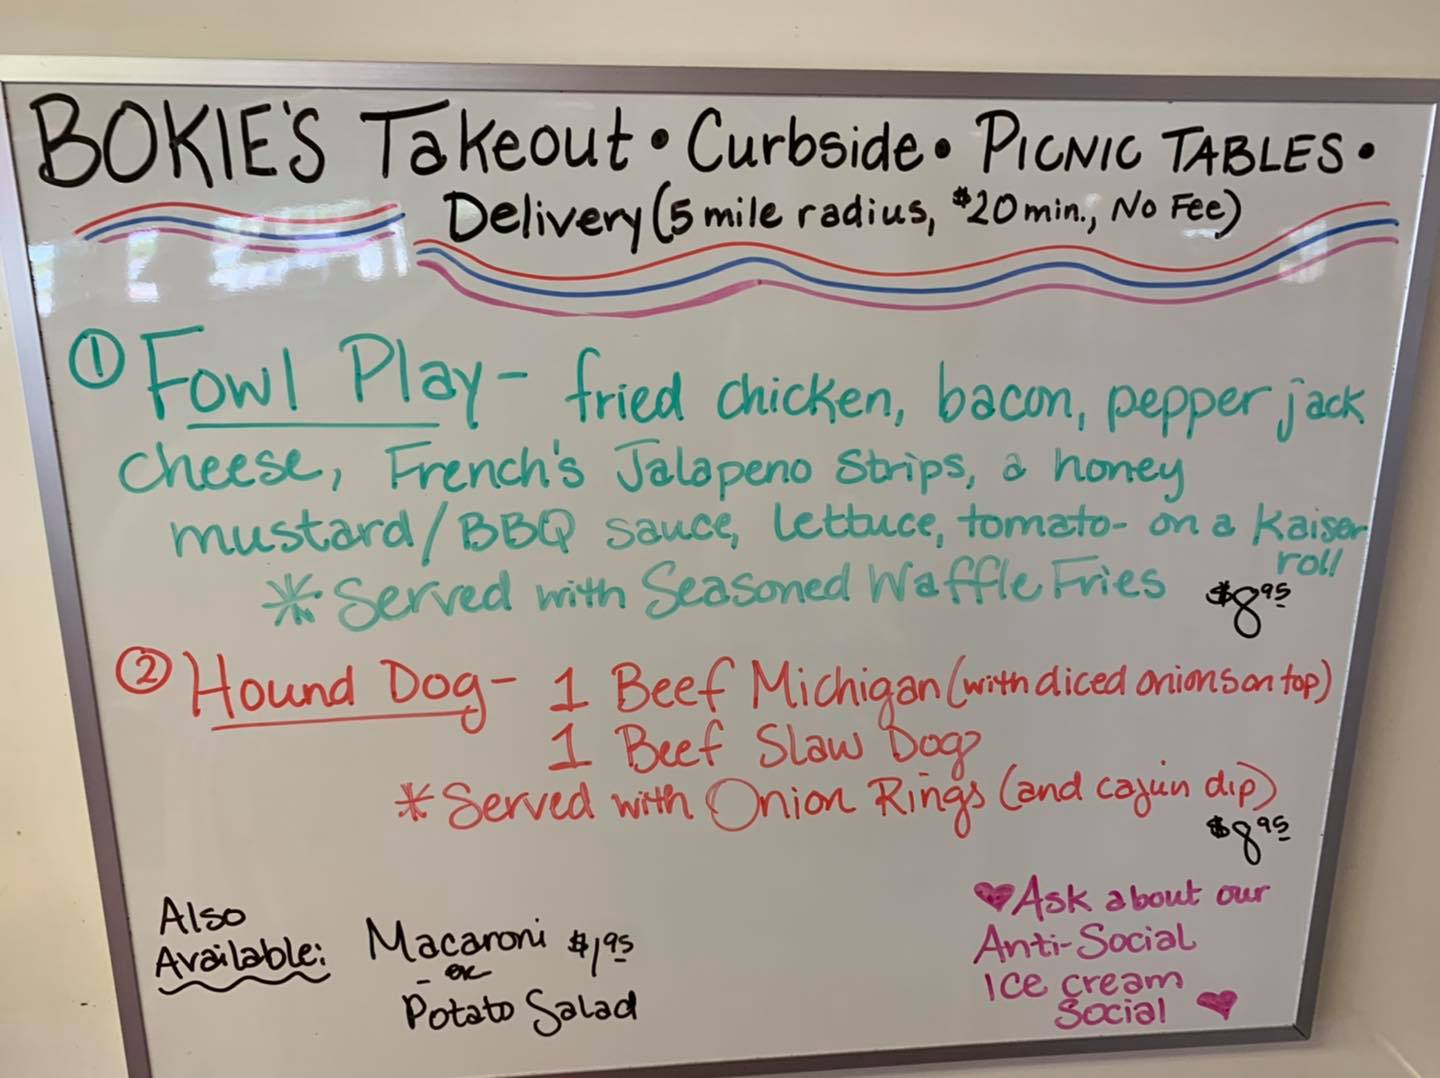 BOKIE'S Takeout • Curbside • PICNIC TABLES •
Delivery (5 mile radius, $20 min., No Fee)
① Fowl Play - fried chicken, bacon, pepper jack
cheese, French's Jalapeno Strips, a honey
mustard/BBQ sauce, lettuce, tomato- on a Kaiser
roll
* Served with Seasoned Waffle Fries $8.95
② Hound Dog - 1 Beef Michigan (with diced onions on top)
1 Beef Slaw Dog
* Served with Onion Rings (and cajun dip)
$8.95
Also
Available:
Macaroni $1.95
- or
Potato Salad
♥ Ask about our
Anti-Social
Ice cream
Social ♥